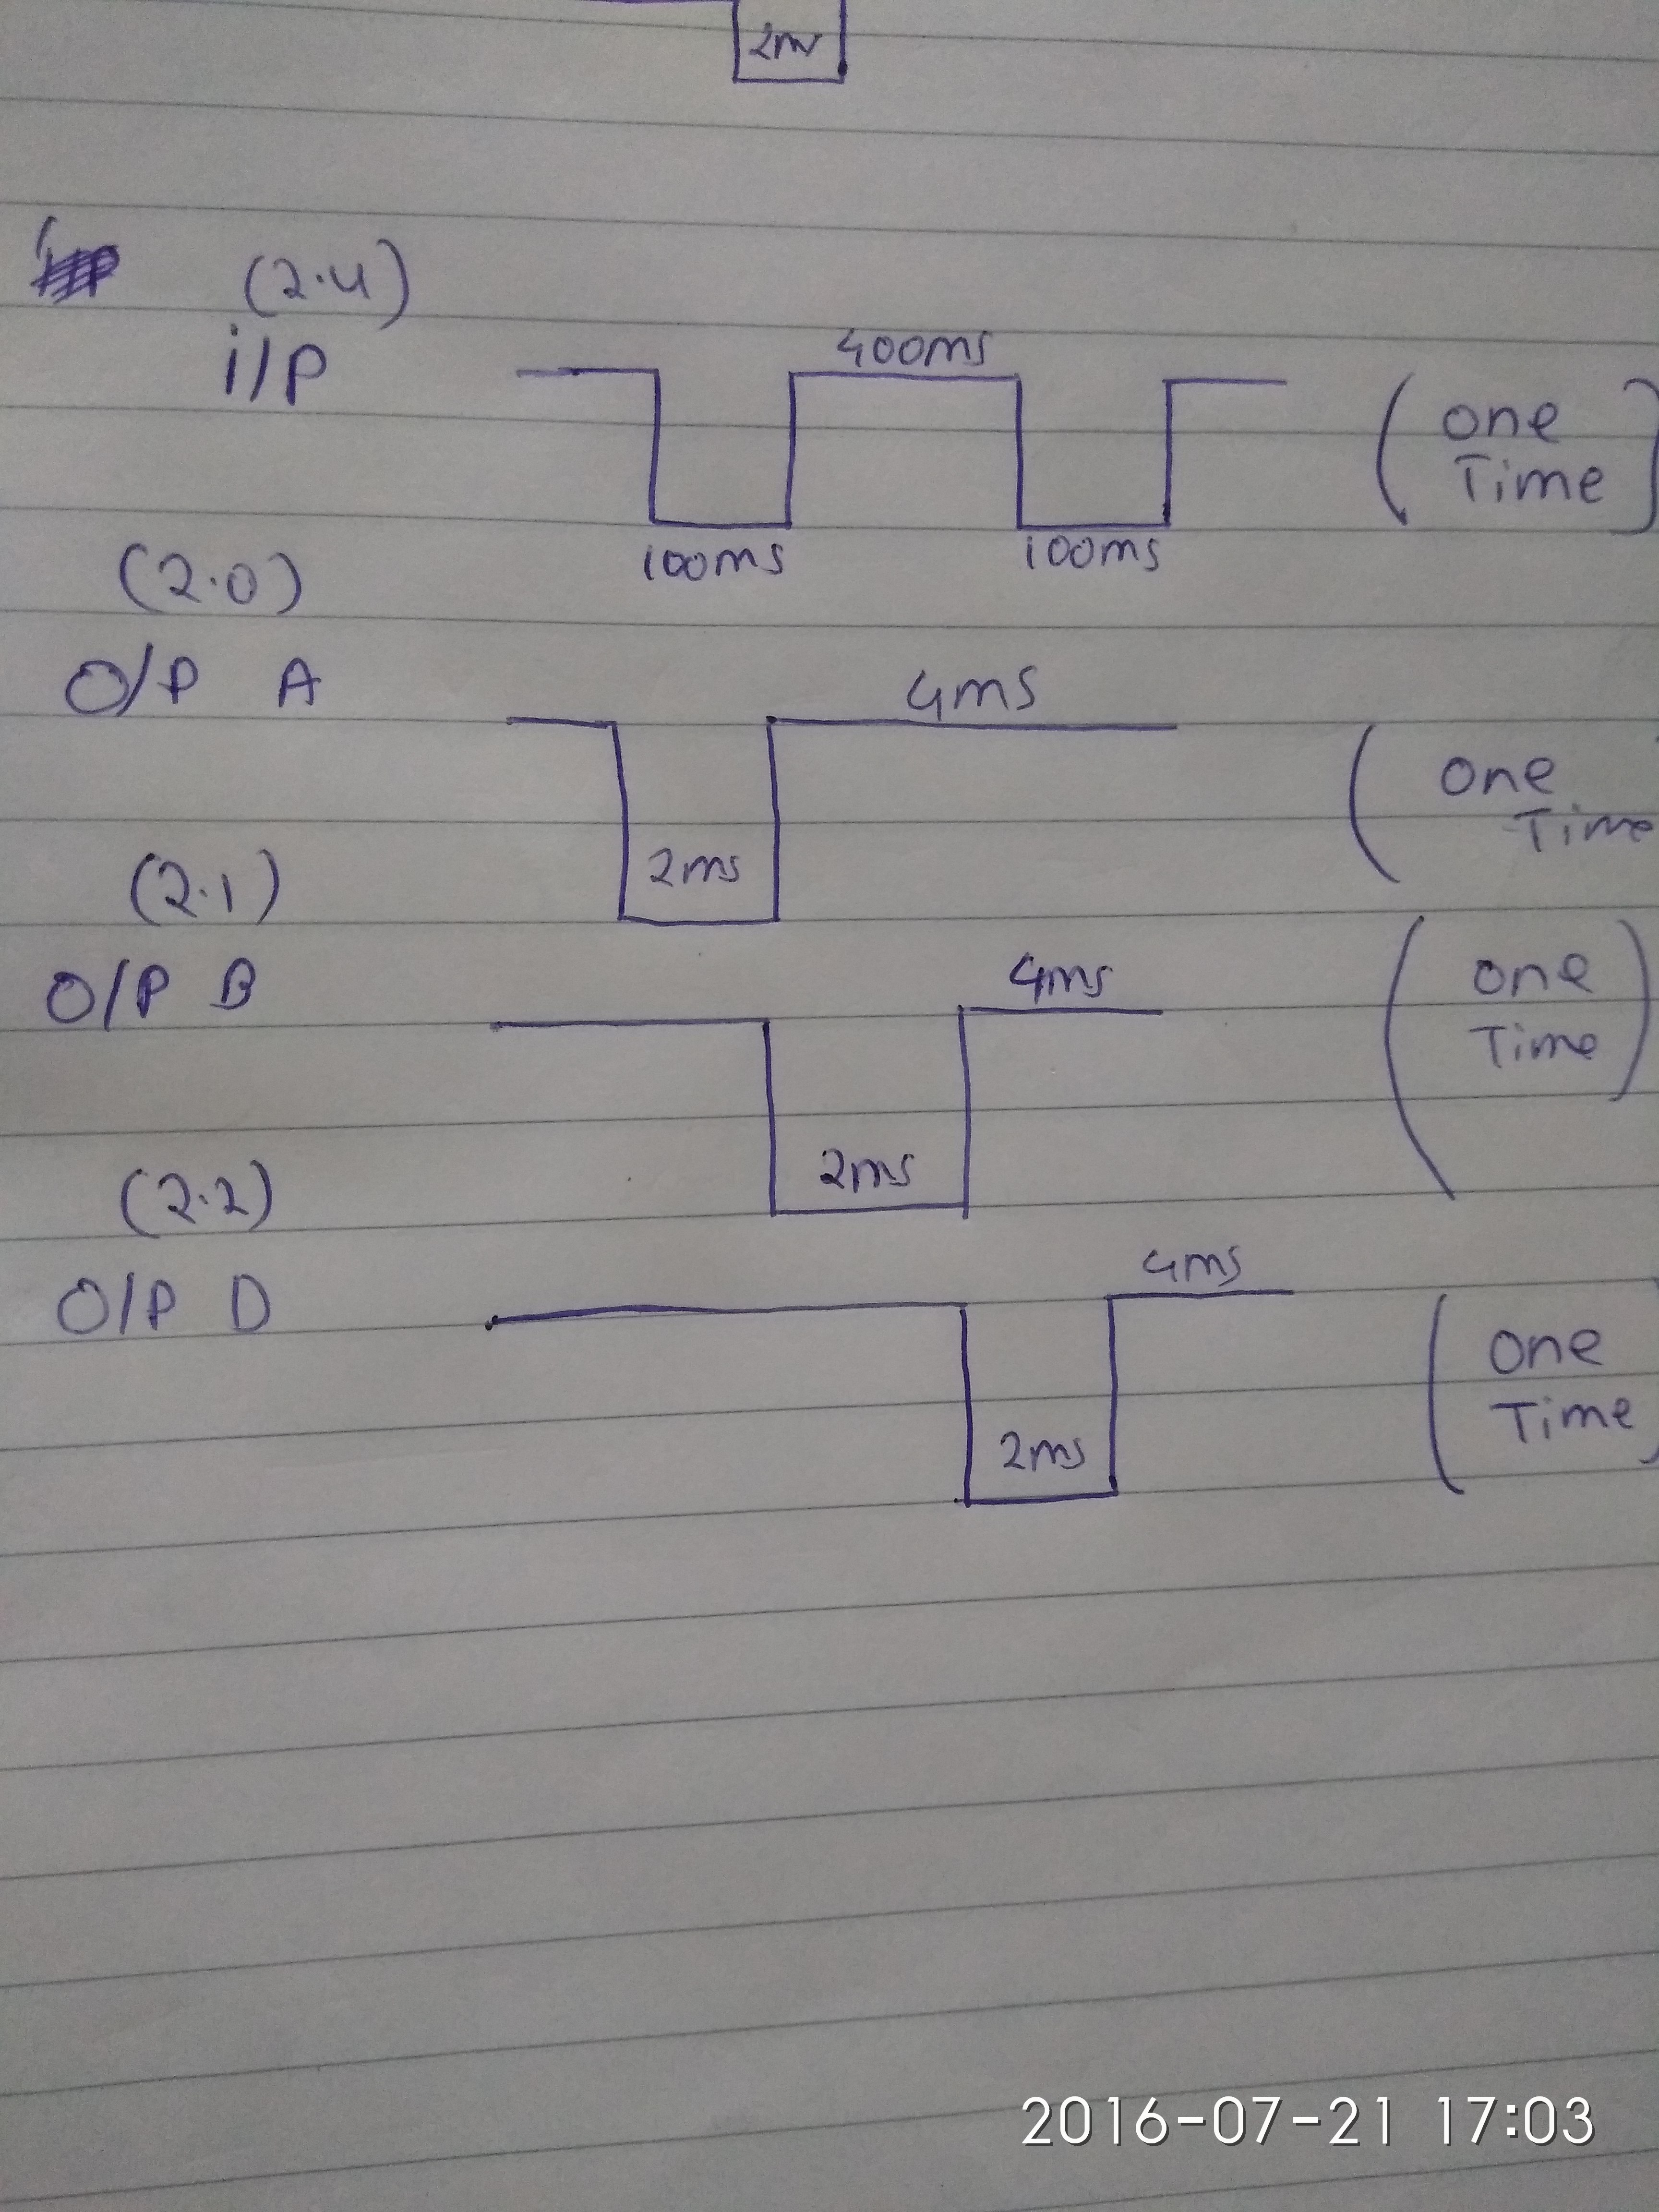 2ms
(2.4)
i/P
400ms
(one
Time)
100ms 100ms
(2.0)
O/P A
4ms
(one
Time
2ms
(2.1)
O/P B
4ms
(one
Time)
2ms
(2.2)
O/P D
4ms
(one
Time)
2ms
2016-07-21 17:03